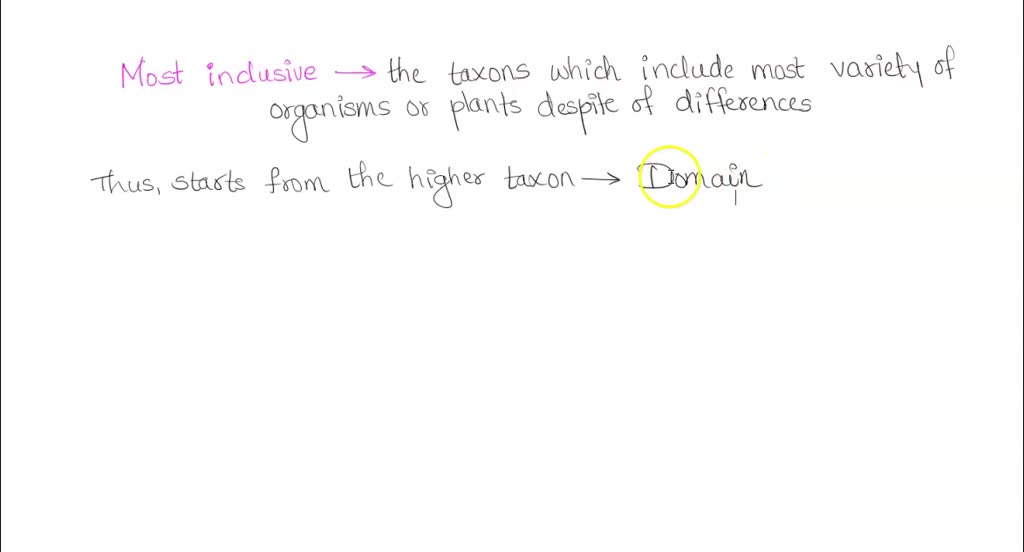 Most inclusive → the taxons which include most variety of
organisms or plants despite of differences
Thus, starts from the higher taxon → Domain